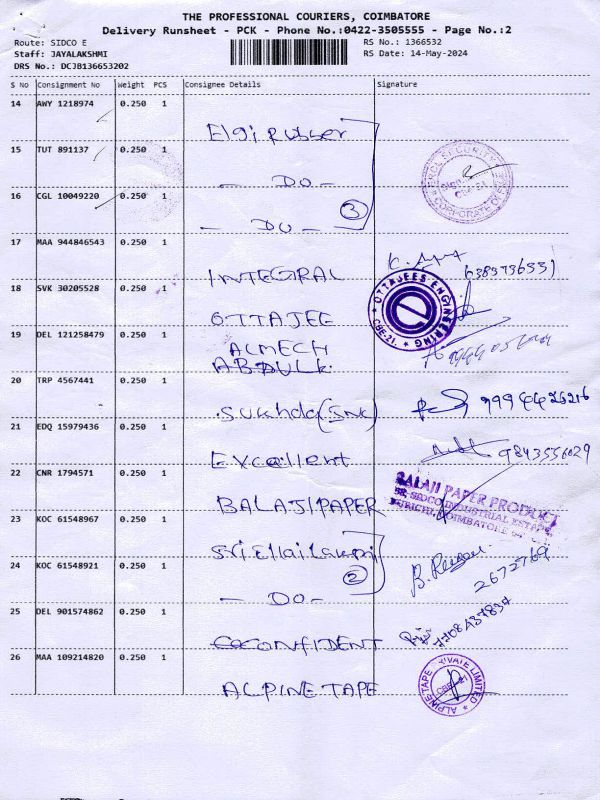 THE PROFESSIONAL COURIERS, COIMBATORE
Delivery Runsheet - PCK - Phone No.:0422-3505555 - Page No.:2
Route: SIDCO E RS No.: 1366532
Staff: JAYALAKSHMI RS Date: 14-May-2024
DRS No.: DCJB136653202
S No Consignment No Weight PCS Consignee Details Signature
14 AWY 1218974 0.250 1 Elgi Rubber
15 TUT 891137 0.250 1 - DO -
16 CGL 10049220 0.250 1 - DO - 3
17 MAA 944846543 0.250 1 INTEGRAL
18 SVK 30205528 0.250 1 OTTAJEE
OTTAJEES ENGINEERING
CBE-21.
19 DEL 121258479 0.250 1 ALMECH
ABDULK.
20 TRP 4567441 0.250 1 Sukhda(SNK)
21 EDQ 15979436 0.250 1 Excellent 9843556029
22 CNR 1794571 0.250 1 BALAJI PAPER
BALAJI PAPER PRODUCT
SIDCO INDUSTRIAL ESTATE
KURICHI, COIMBATORE
23 KOC 61548967 0.250 1
24 KOC 61548921 0.250 1 - DO - 2 2672769
25 DEL 901574862 0.250 1 CONFIDENT
26 MAA 109214820 0.250 1 ALPINE TAPE
ALPINE TAPE PRIVATE LIMITED
CBE-21